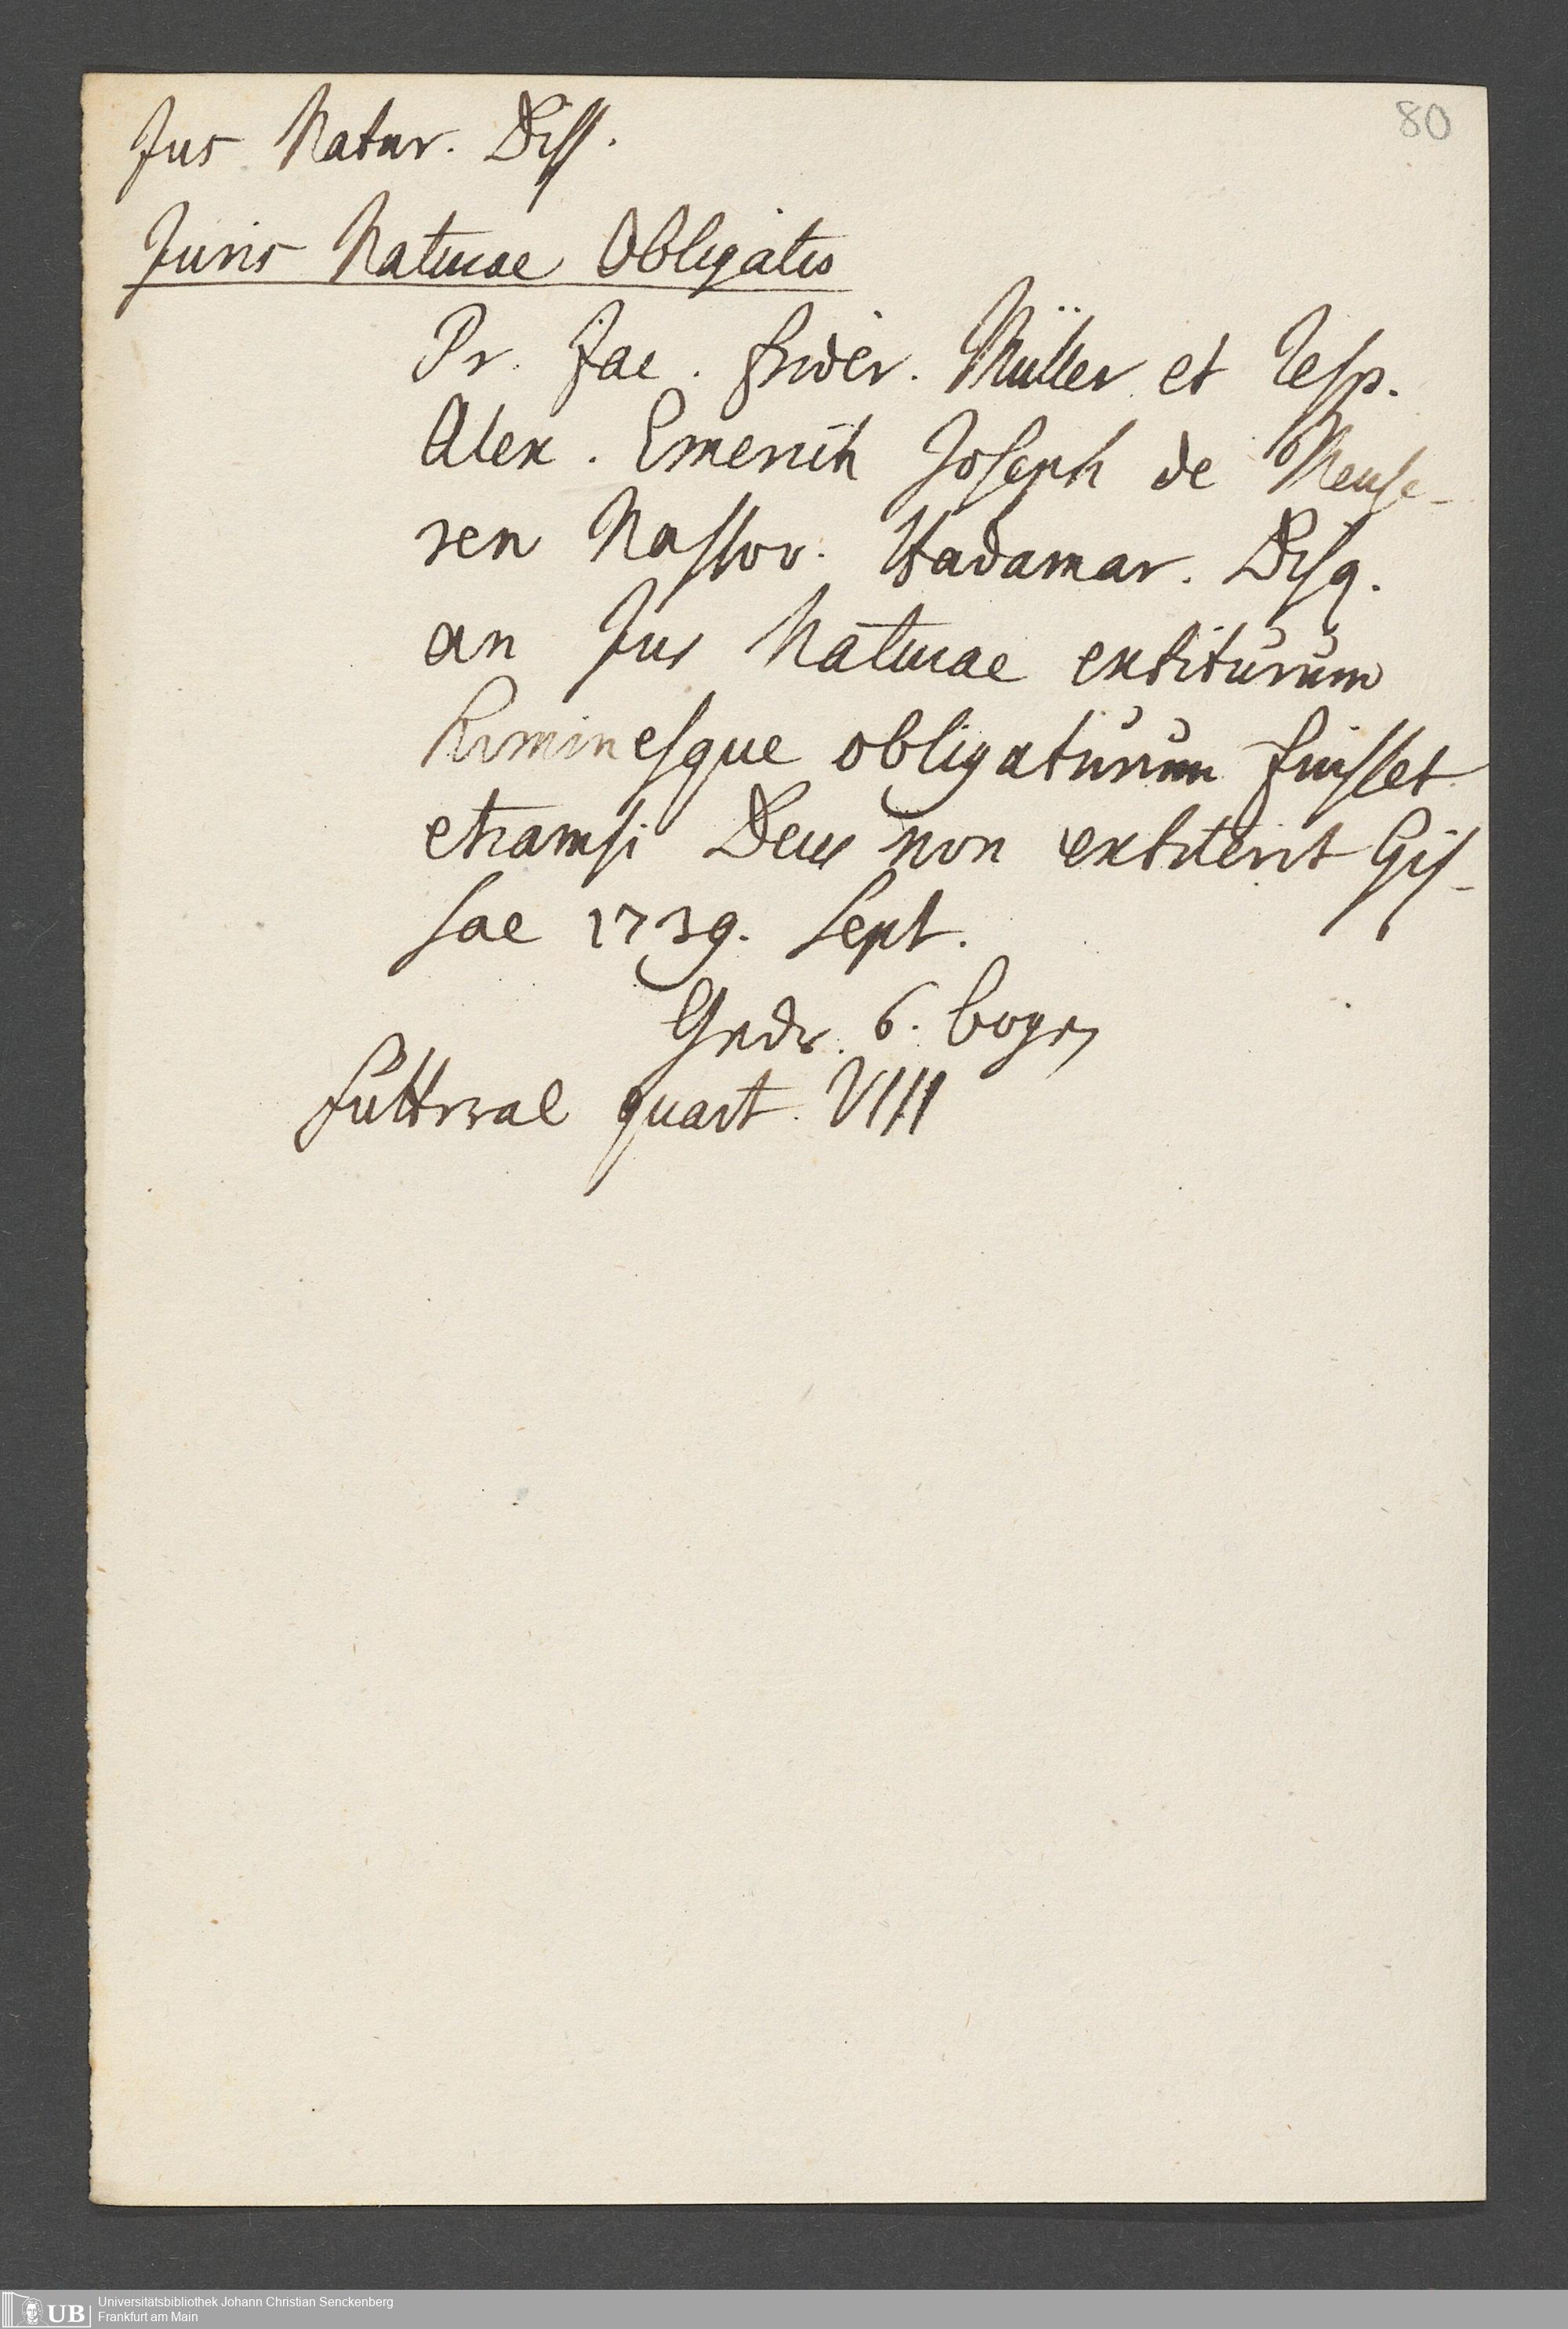 80
Jus Natur. Diss.
Juris Naturae Obligatio
Pr. Jac. Frider. Müller et Resp.
Alex. Emerich Joseph de Meuse-
ren Nassov. Hadamar. Disq.
an Jus Naturae extiturum
hominesque obligaturum fuisset
etiamsi Deus non extiterit Gis-
sae 1739. Sept.
6. bogen
quart. VIIII
UB
Universitätsbibliothek Johann Christian Senckenberg
Frankfurt am Main